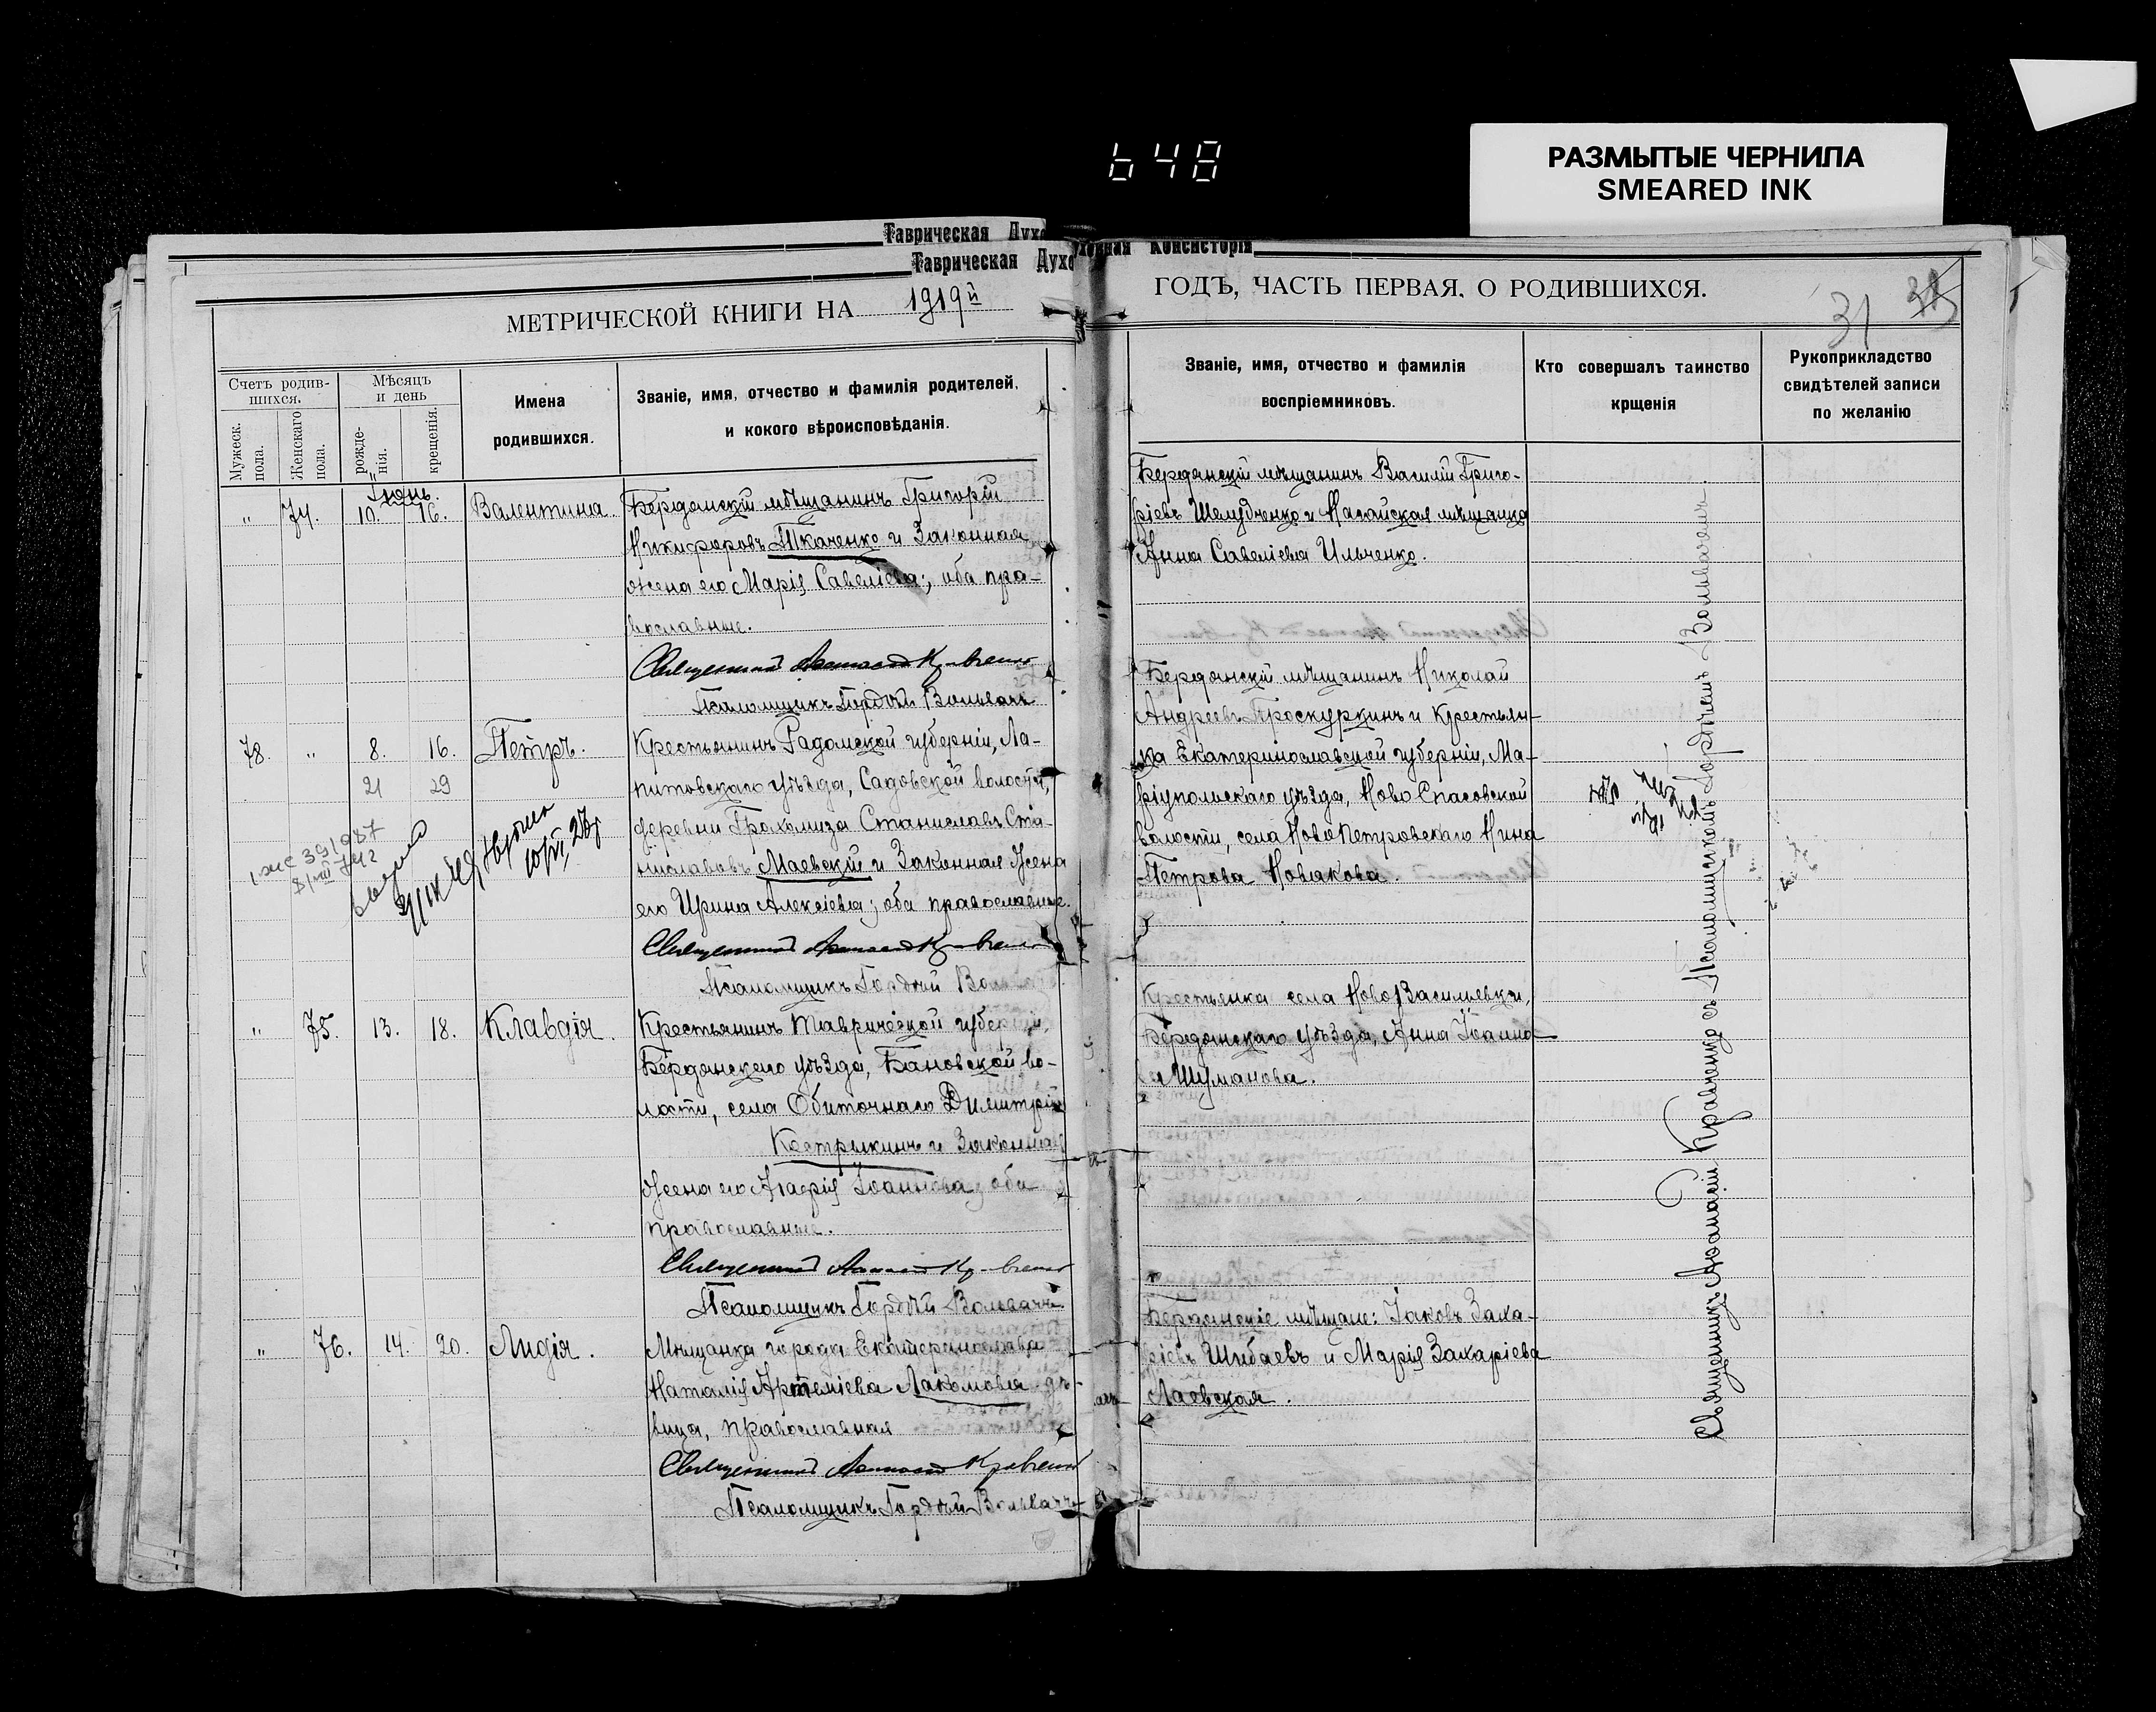 648
РАЗМЫТЫЕ ЧЕРНИЛА
SMEARED INK
Таврическая Духо
ховная Консисторія
Таврическая Духо
МЕТРИЧЕСКОЙ КНИГИ НА 1919й
ГОДЪ, ЧАСТЬ ПЕРВАЯ, О РОДИВШИХСЯ.
31
Счетъ родив-
шихся.
Мужеск.
пола.
Женскаго
пола.
Мѣсяцъ
и день
рожде-
нія.
крещенія.
Имена
родившихся.
Званіе, имя, отчество и фамилія родителей,
и кокого вѣроисповѣданія.
Званіе, имя, отчество и фамилія
воспріемниковъ.
Кто совершалъ таинство
крщенія
Рукоприкладство
свидѣтелей записи
по желанію
Іюнь.
" 74. 10. 16. Валентина.
Бердянскій мѣщанинъ Григорій
Никифоровъ Ткаченко и Законная
жена его Марія Савеліева; оба пра-
вославные.
Священникъ Афанасій Кравченко
Псаломщикъ Гордѣй Вольвачъ
Бердянскій мѣщанинъ Василій Григо-
ріевъ Шелудченко и Нагайская мѣщанка
Анна Савеліева Ильченко.
78. " 8. 16. Петръ.
21 29
Крестьянинъ Радомской губерніи, Ла-
питовскаго уѣзда, Садовской волости,
деревни Грохолиза Станиславъ Ста-
ниславовъ Маевскій и Законная Жена
его Ирина Алексіева; оба православные.
Священникъ Афанасій Кравченко
Псаломщикъ Гордѣй Вольвачъ
Бердянскій мѣщанинъ Николай
Андреевъ Проскуркинъ и Крестьян-
ка Екатеринославской губерніи, Ма-
ріупольскаго уѣзда, Ново Спасовской
волости, села НовоПетровскаго Нина
Петрова Новакова.
" 75. 13. 18. Клавдія.
Крестьянинъ Таврической губерніи,
Бердянскаго уѣзда, Бановской во-
лости, села Обиточнаго Димитрій
Кострыкинъ и Законная
Жена его Агафія Іоаннова; оба
православные.
Священникъ Афанасій Кравченко
Псаломщикъ Гордѣй Вольвачъ.
Крестьянка села НовоВасильевки,
Бердянскаго уѣзда, Анна Іоанно-
ва Шуманова.
" 76. 14. 20. Лидія.
Мѣщанка города Екатеринослава
Наталія Артеміева Лакомова дѣ-
вица, православная
Священникъ Афанасій Кравченко
Псаломщикъ Гордѣй Вольвачъ
Бердянскіе мѣщане: Іаковъ Заха-
ріевъ Шибаевъ и Марія Захаріева
Лаевская.
Священникъ Афанасій Кравченко съ Псаломщикомъ Гордѣемъ Вольвачемъ.